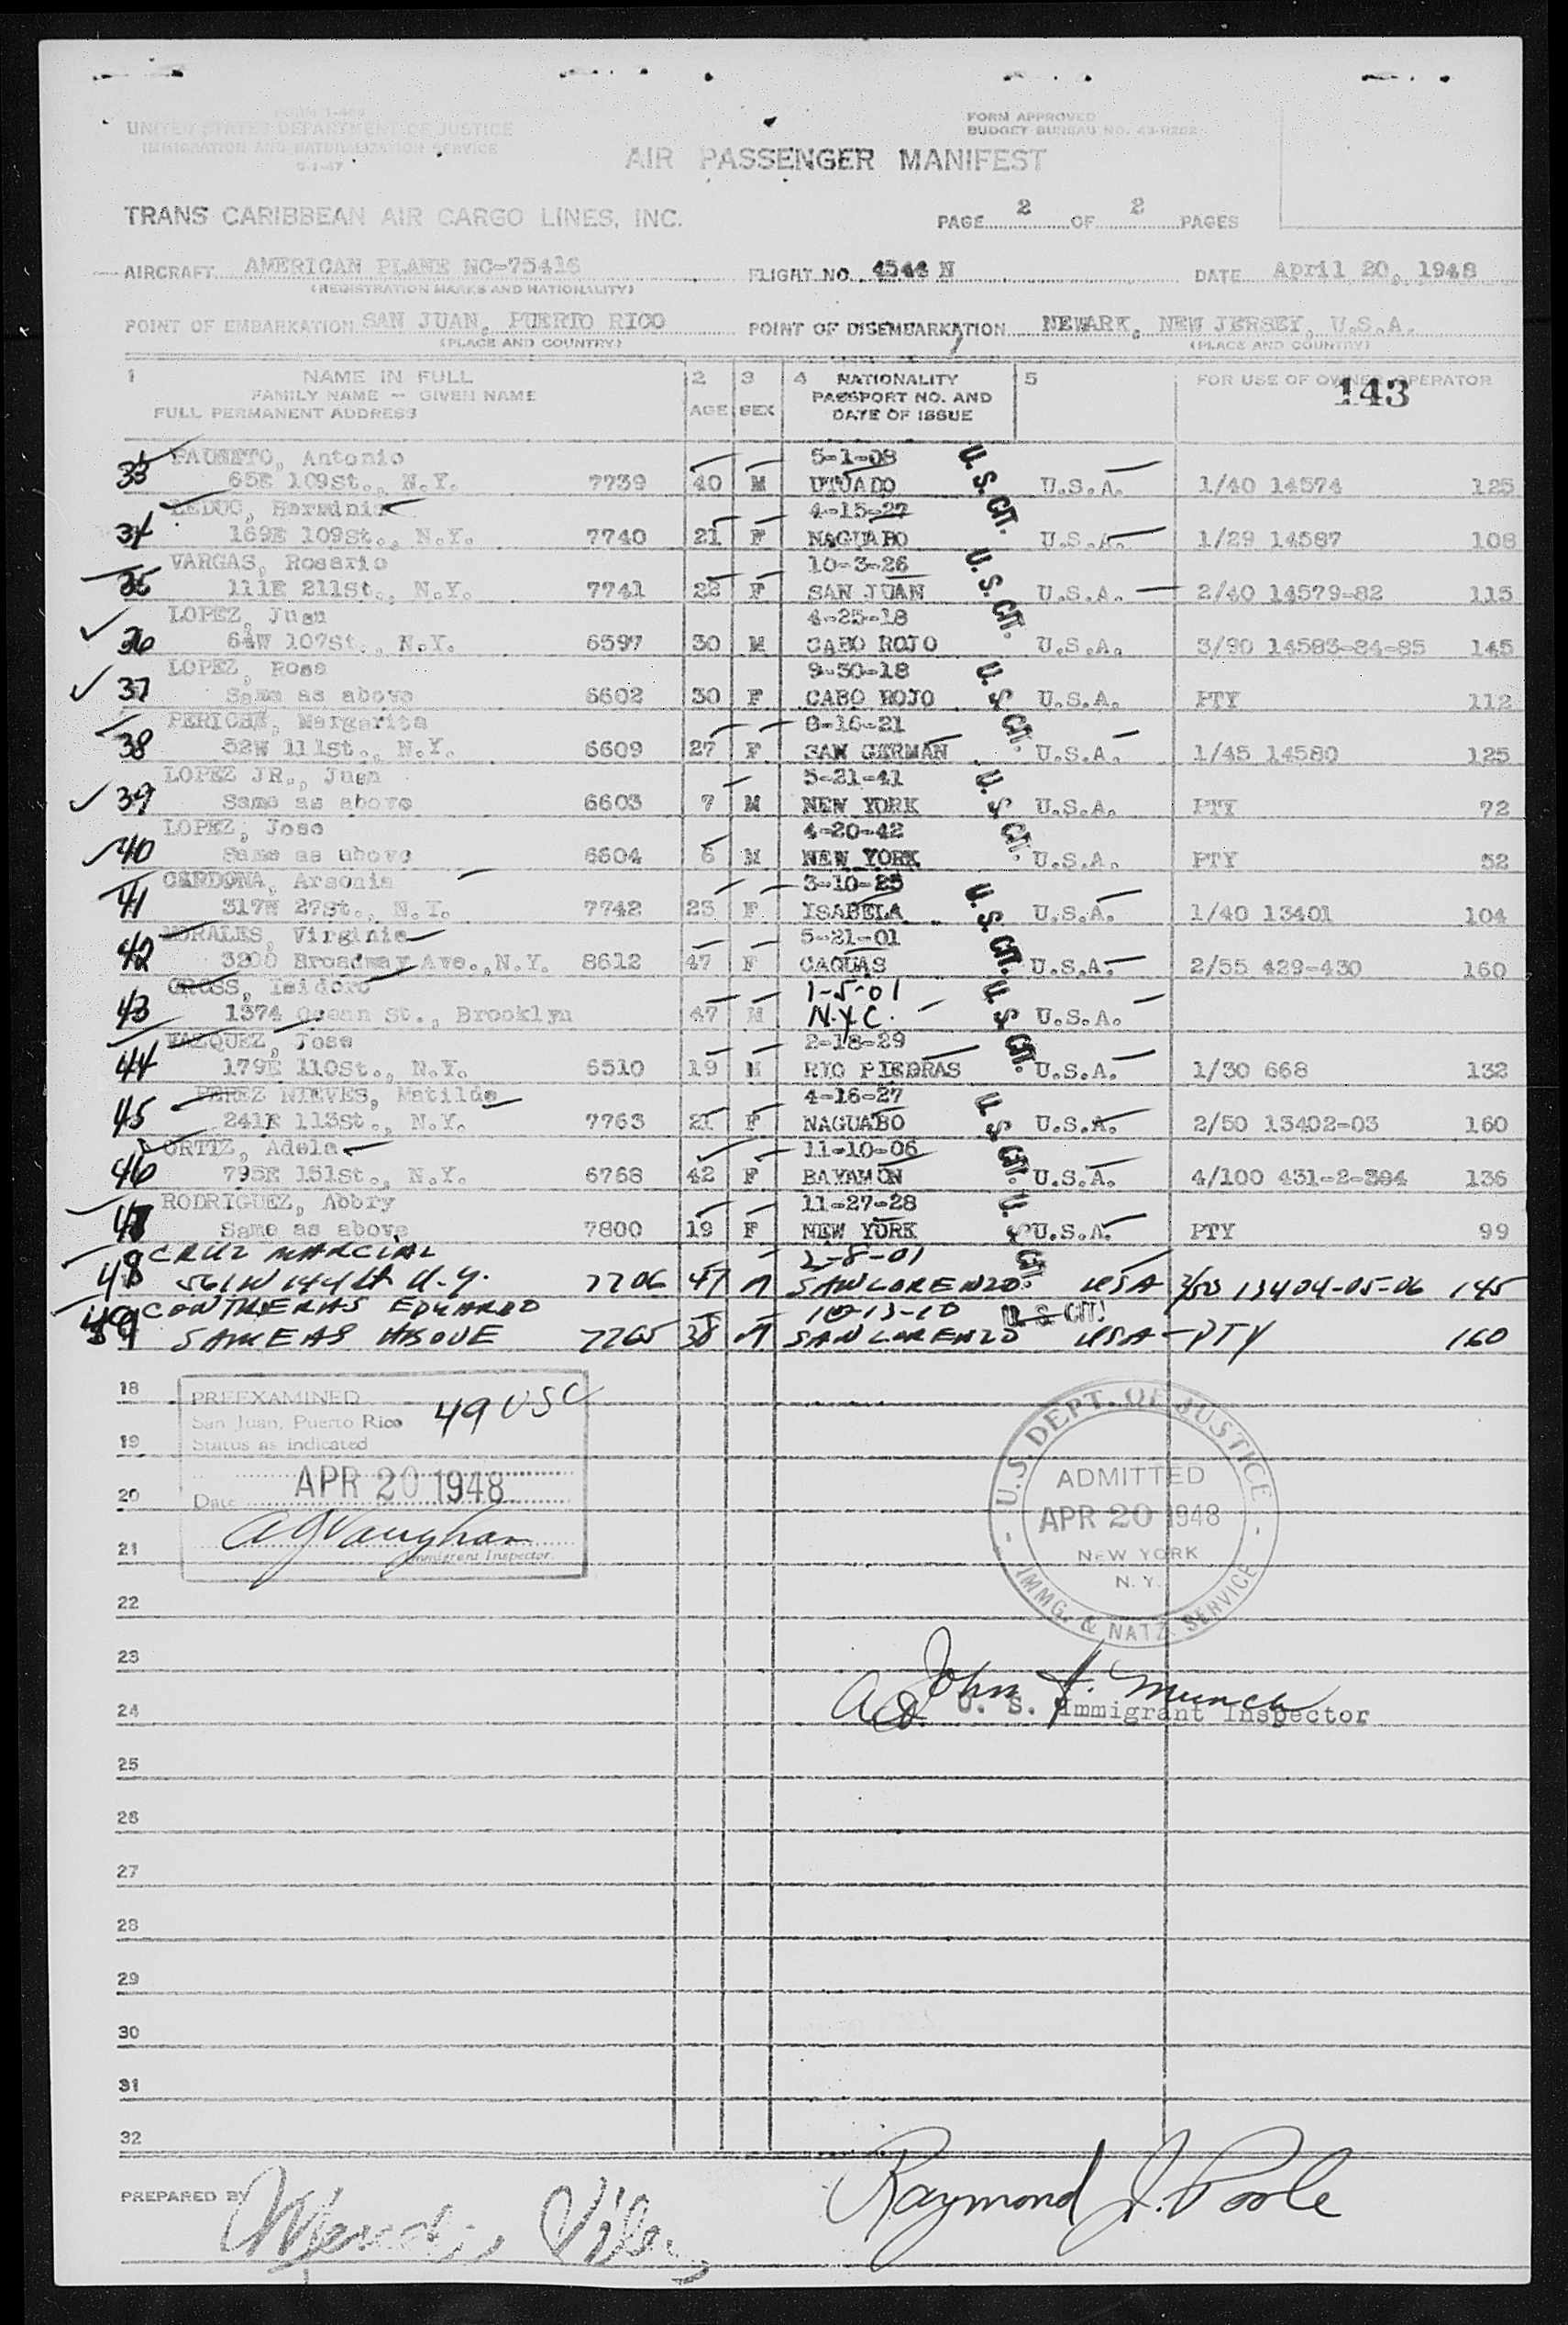 FORM I-466
UNITED STATES DEPARTMENT OF JUSTICE
IMMIGRATION AND NATURALIZATION SERVICE
FORM APPROVED
BUDGET BUREAU NO. 43-R
AIR PASSENGER MANIFEST
TRANS CARIBBEAN AIR CARGO LINES, INC.
PAGE 2 OF 2 PAGES
AIRCRAFT AMERICAN PLANE NC-75416 FLIGHT NO. 4544 N DATE April 20, 1948
(REGISTRATION MARKS AND NATIONALITY)
POINT OF EMBARKATION SAN JUAN, PUERTO RICO POINT OF DISEMBARKATION NEWARK, NEW JERSEY, U.S.A.
(PLACE AND COUNTRY) (PLACE AND COUNTRY)
1 NAME IN FULL 2 3 4 NATIONALITY 5 FOR USE OF OWNER OPERATOR
FAMILY NAME — GIVEN NAME PASSPORT NO. AND 143
FULL PERMANENT ADDRESS AGE SEX DATE OF ISSUE
Antonio 5-1-08
33 65E 109St., N.Y. 7739 40 M UTUADO U.S.CIT. U.S.A. 1/40 14574 125
LEDUC, Herminia 4-15-27
34 169E 109St., N.Y. 7740 21 F NAGUABO U.S.A. 1/29 14587 108
VARGAS, Rosario 10-3-26
35 111E 211St., N.Y. 7741 22 F SAN JUAN U.S.CIT. U.S.A. 2/40 14579-82 115
LOPEZ, Juan 4-25-18
36 64W 107St., N.Y. 6597 30 M CABO ROJO U.S.A. 3/90 14583-84-85 145
LOPEZ, Rosa 9-30-18
37 Same as above 6602 30 F CABO ROJO U.S.CIT. U.S.A. PTY 112
PERICHE, Margarita 8-16-21
38 52W 111St., N.Y. 6609 27 F SAN GERMAN U.S.A. 1/45 14580 125
LOPEZ JR., Juan 5-21-41
39 Same as above 6603 7 M NEW YORK U.S.CIT. U.S.A. PTY 72
LOPEZ, Jose 4-20-42
40 Same as above 6604 6 M NEW YORK U.S.A. PTY 52
CARDONA, Arsonia 3-10-25
41 317W 27St., N.Y. 7742 23 F ISABELA U.S.CIT. U.S.A. 1/40 13401 104
MORALES, Virginia 5-21-01
42 3200 Broadway Ave.,N.Y. 8612 47 F CAGUAS U.S.A. 2/55 429-430 160
GROSS, Isidoro 1-5-01
43 1374 Ocean St., Brooklyn 47 M N.Y.C. U.S.CIT. U.S.A.
VAZQUEZ, Jose 2-18-29
44 179E 110St., N.Y. 6510 19 M RIO PIEDRAS U.S.A. 1/30 668 132
PEREZ NIEVES, Matilde 4-16-27
45 241E 113St., N.Y. 7763 21 F NAGUABO U.S.CIT. U.S.A. 2/50 13402-03 160
ORTIZ, Adela 11-10-06
46 795E 151St., N.Y. 6768 42 F BAYAMON U.S.A. 4/100 431-2-394 136
RODRIGUEZ, Abbry 11-27-28
47 Same as above 7800 19 F NEW YORK U.S.CIT. U.S.A. PTY 99
CRUZ MARCIAL 2-8-01
48 561W 144 St N.Y. 7706 47 M SAN LORENZO USA 3/50 13404-05-06 145
CONTRERAS EDUARDO 10-13-10 U.S.CIT.
49 SAME AS ABOVE 7765 38 M SAN LORENZO USA PTY 160
18
PREEXAMINED 49 USC
San Juan, Puerto Rico
19 Status as indicated
20 Date APR 20 1948
AJVaughan
21 Immigrant Inspector
U.S. DEPT. OF JUSTICE
ADMITTED
APR 20 1948
NEW YORK
N.Y.
IMMG. & NATZ. SERVICE
22
23
John J. Munch
24 U. S. Immigrant Inspector
25
26
27
28
29
30
31
32
PREPARED BY
Raymond J. Poole